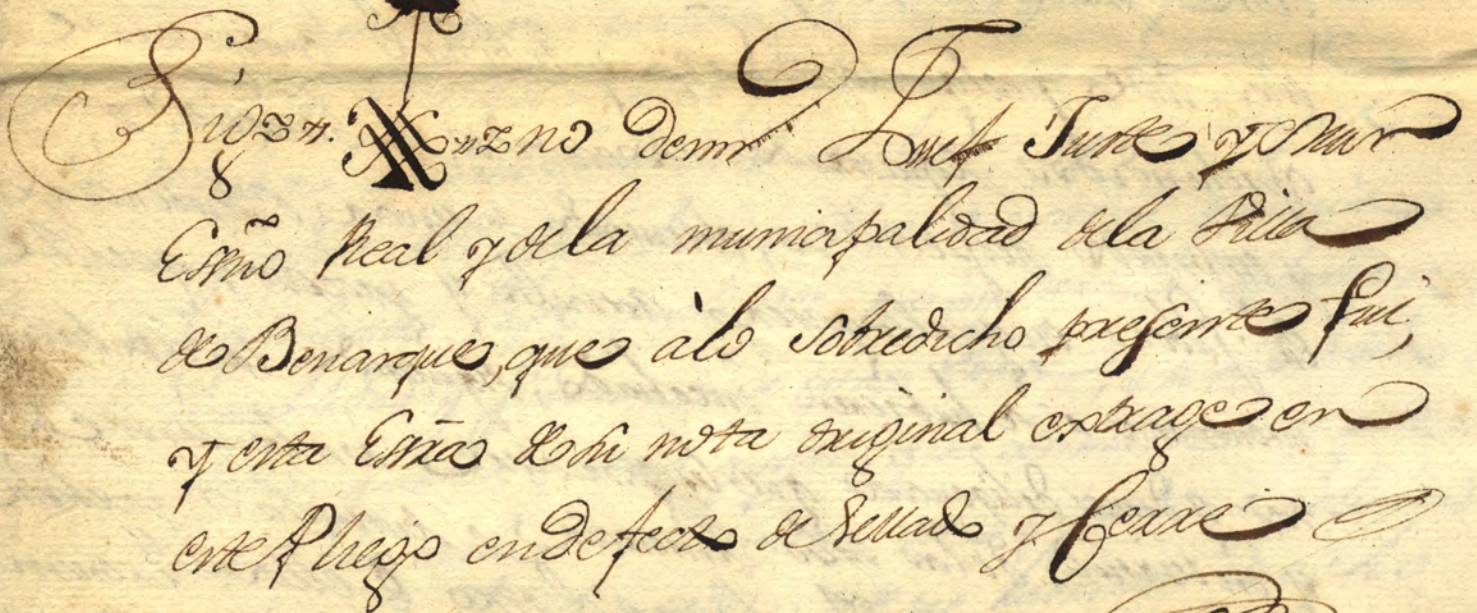 Sig no de mi Josef Juste y Mur
Essno Real y dela municipalidad dela Villa
de Benarque, que àlo sobredicho presente fui,
y esta Essra de su nota original extrage en
este Pliego en defecto de sellado y Cerre